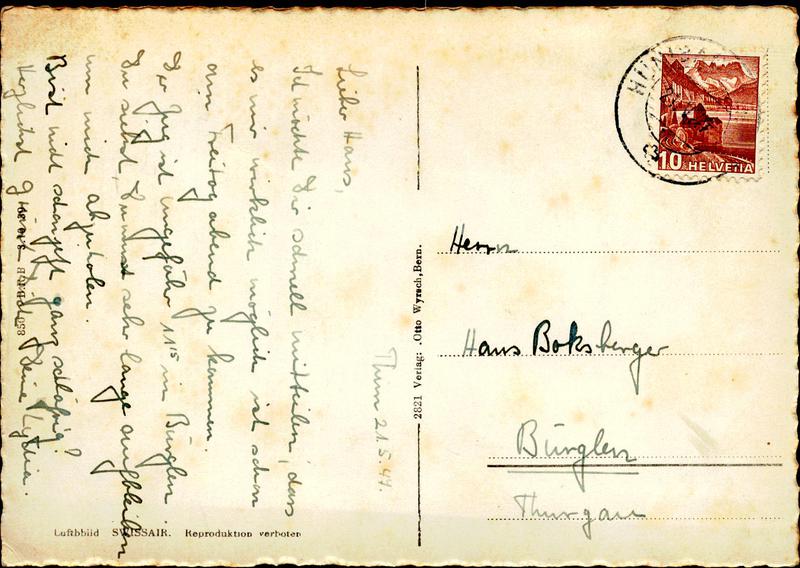 Thun 21.5.44.
Lieber Hans,
Ich möchte Dir schnell mitteilen, dass
es mir wirklich möglich ist schon
am Freitag abend zu kommen.
Der Zug ist ungefähr 11¹⁵ in Bürglen.
Du siehst, Du musst sehr lange aufbleiben
um mich abzuholen.
Bist nicht ganz schläfrig?
Herzlichst Deine Lydia.
Luftbbild SWISSAIR. Reproduktion verboten
2821 Verlag: Otto Wyrsch, Bern.
10 HELVETIA
Herrn
Hans Boksberger
Bürglen
Thurgau